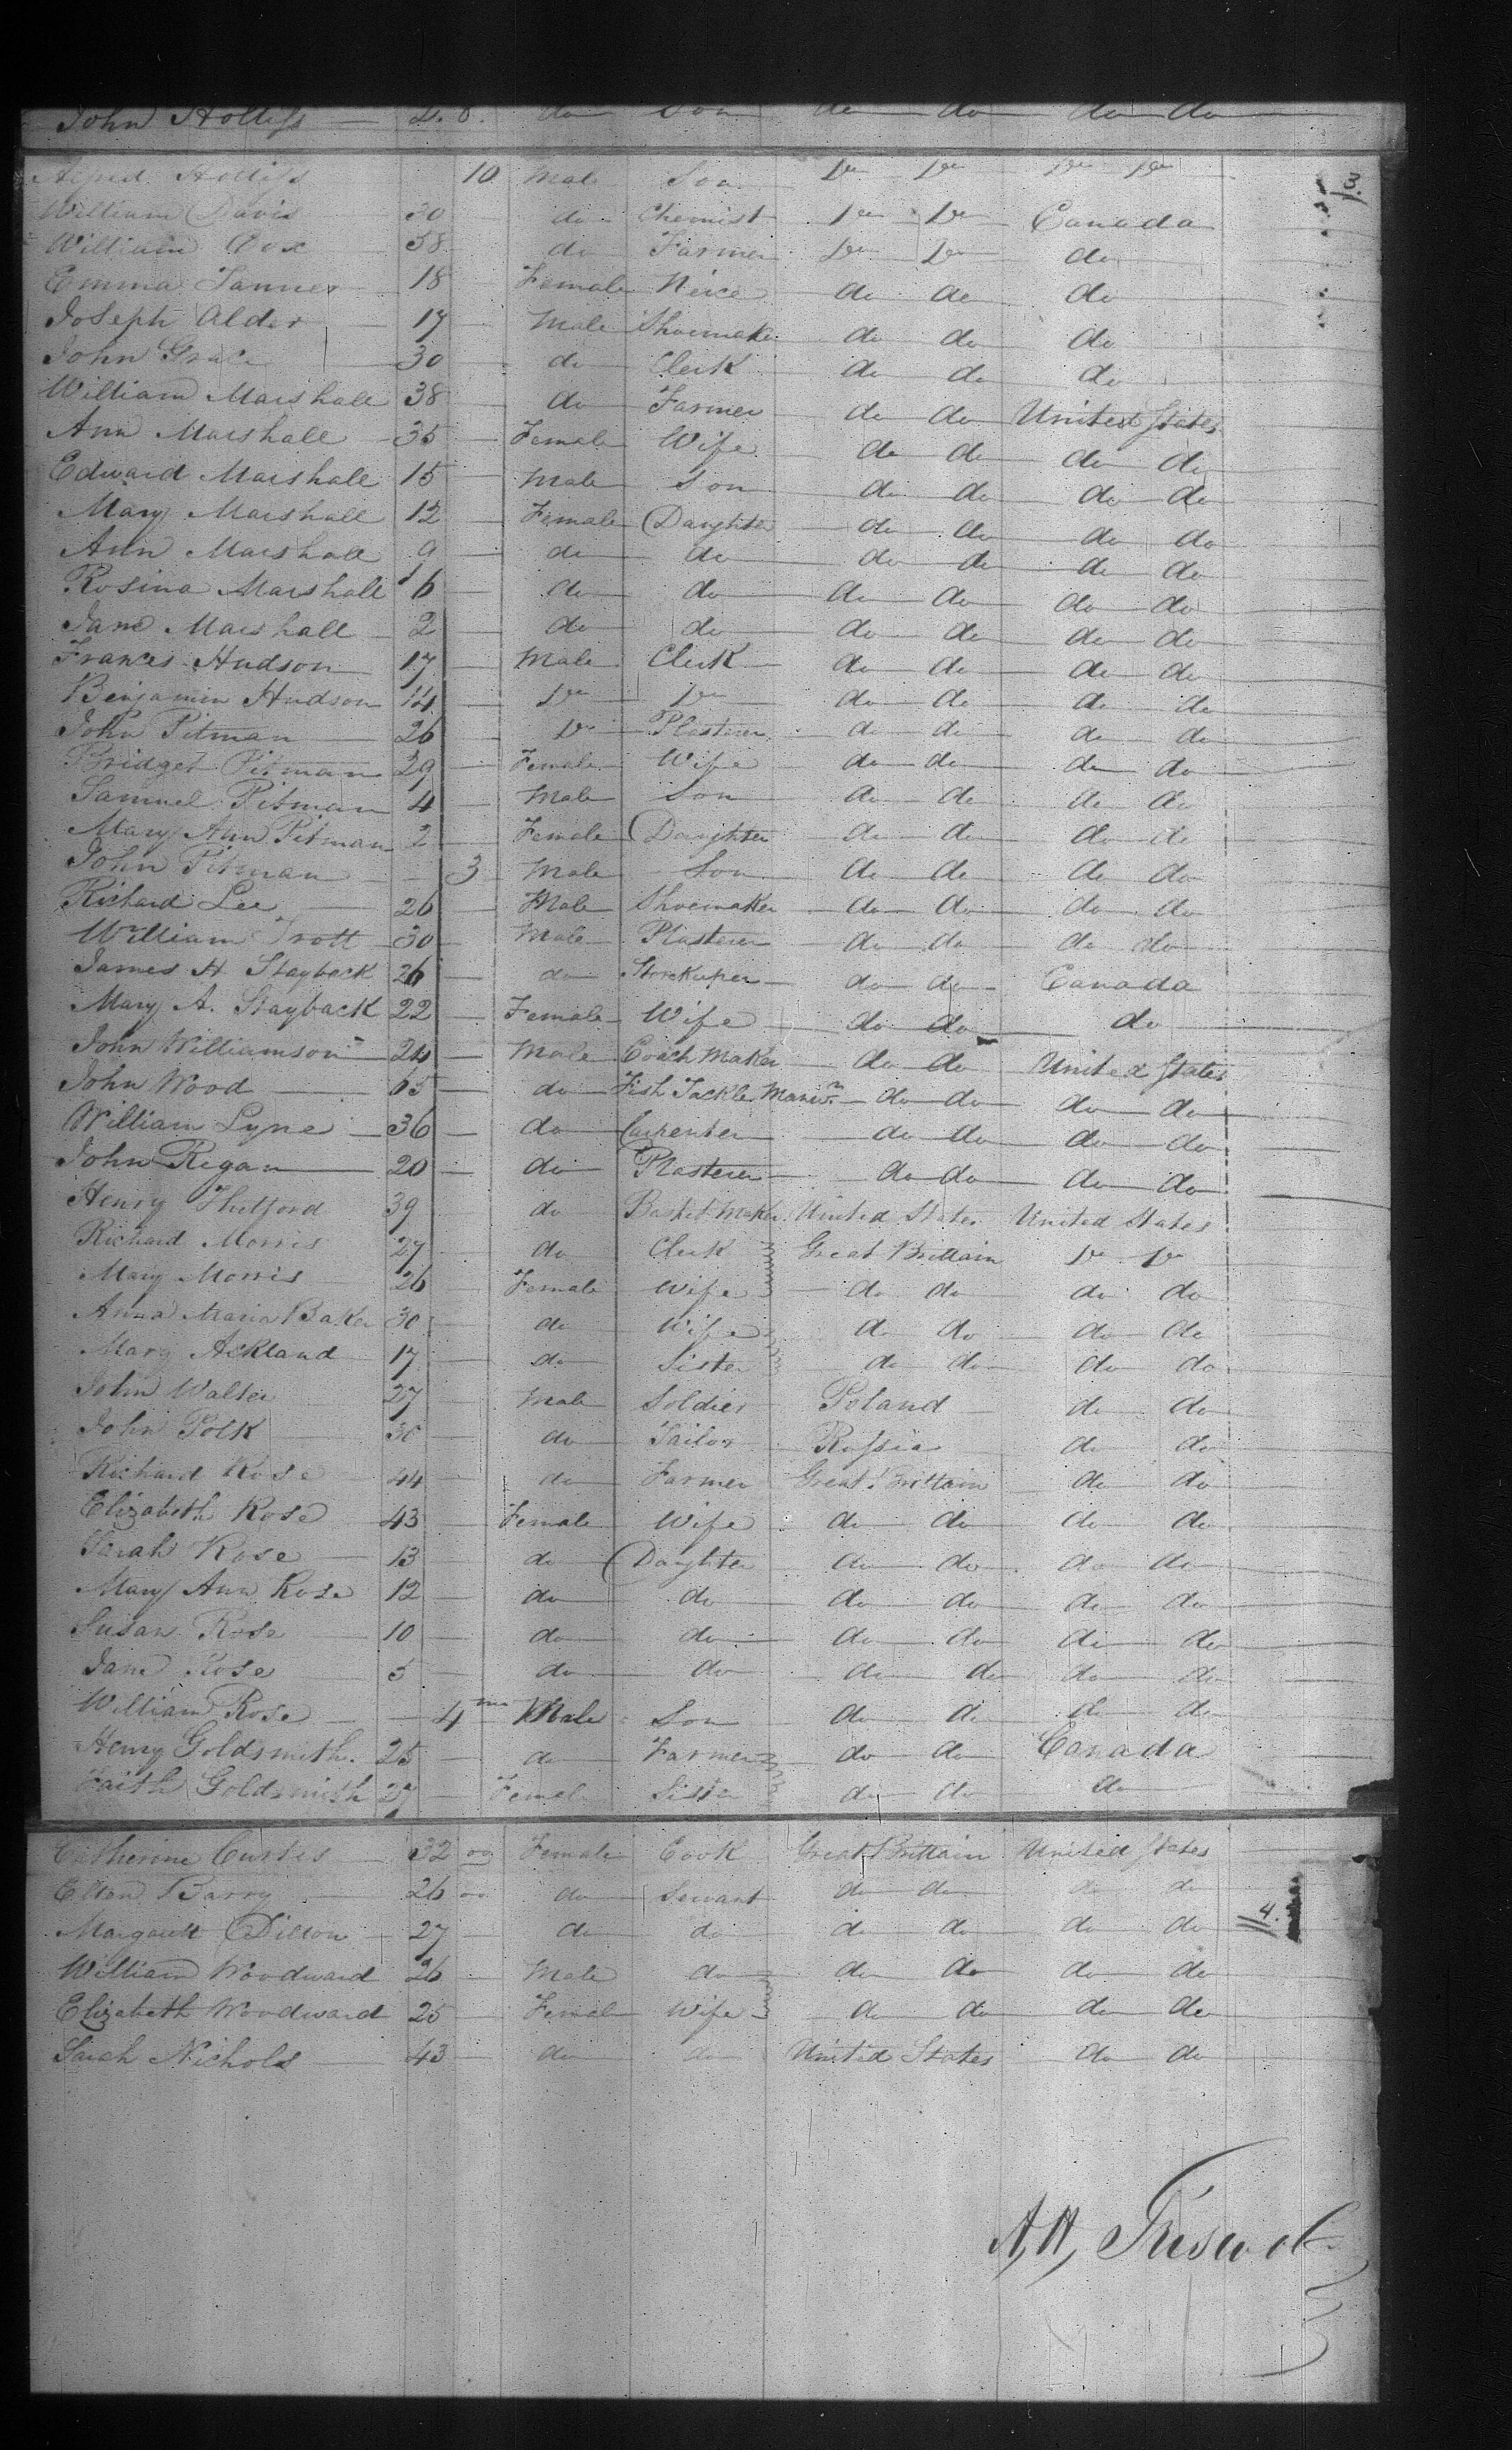 John Holliss do Son do do do do
Alfred Holliss 10 Male Son Do Do Do Do
3.
William Davis 30 do Chemist Do Do Canada
William Cox 38 do Farmer Do Do do
Emma Tanner 18 Female Neice do do do
Joseph Alder 17 Male Shoemaker do do do
John Grace 30 do Clerk do do do
William Marshall 38 do Farmer do do United States
Ann Marshall 35 Female Wife do do do do
Edward Marshall 15 Male Son do do do do
Mary Marshall 12 Female Daughter do do do do
Ann Marshall 9 do do do do do do
Rosina Marshall 6 do do do do do do
Jane Marshall 2 do do do do do do
Frances Hudson 17 Male Clerk do do do do
Benjamin Hudson 14 Do Do do do do do
John Pitman 26 Do Plasterer do do do do
Bridget Pitman 29 Female Wife do do do do
Samuel Pitman 4 Male Son do do do do
Mary Ann Pitman 2 Female Daughter do do do do
John Pitman 3 Male Son do do do do
Richard Lee 26 Male Shoemaker do do do do
William Trott 30 Male Plasterer do do do do
James H Stayback 26 do Storekeeper do do Canada
Mary A. Stayback 22 Female Wife do do do
John Williamson 24 Male Coach Maker do do United States
John Wood 65 do Fish Tackle do do do do
William Lyne 36 do Carpenter do do do do
John Regan 20 do Plasterer do do do do
Henry Thetford 39 do Basket Maker United States United States
Richard Morris 27 do Clerk Great Brittain Do Do
Mary Morris 26 Female Wife do do do do
Anna Maria Baker 30 do Wife do do do do
Mary Ackland 17 do Sister do do do do
John Walter 27 Male Soldier Poland do do
John Polk 30 do Tailor Russia do do
Richard Rose 44 do Farmer Great Brittain do do
Elizabeth Rose 43 Female Wife do do do do
Sarah Rose 13 do Daughter do do do do
Mary Ann Rose 12 do do do do do do
Susan Rose 10 do do do do do do
Jane Rose 5 do do do do do do
William Rose 4 mo Male Son do do do do
Henry Goldsmith. 25 do Farmer do do Canada
Faith Goldsmith 27 Female Sister do do do
Catherine Curtis 32 Female Cook Great Brittain United States
Ellen Barry 26 do Servant do do do do
4.
Margarett Dillon 27 do do do do do do
William Woodward 26 Male do do do do do
Elizabeth Woodward 25 Female Wife do do do do
Sarah Nichols 43 do do United States do do
A, H, Griswold